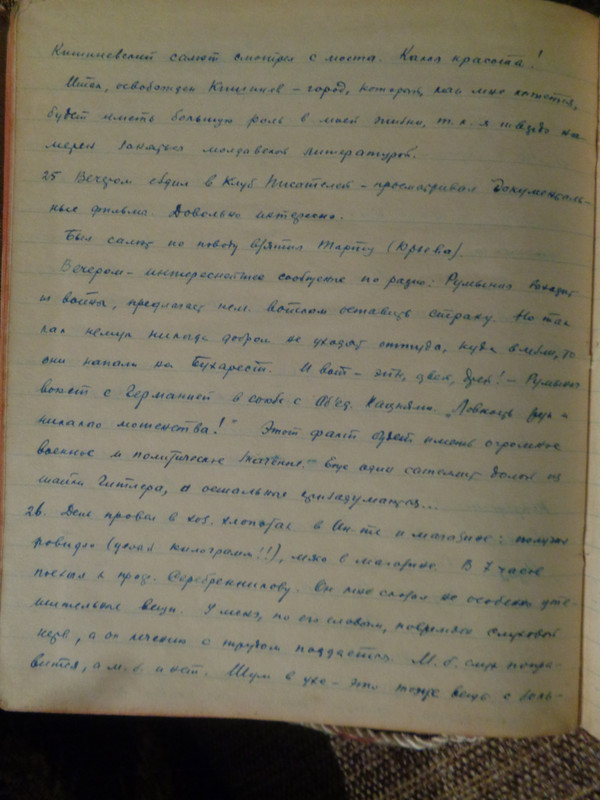 Кишиневский салют смотрел с моста. Какая красота!
Итак, освобожден Кишинев – город, который, как мне кажется,
будет иметь большую роль в моей жизни, т.к. я твердо на-
мерен заняться молдавской литературой.
25 Вечером ездил в Клуб Писателей – просматривал документаль-
ные фильмы. Довольно интересно.
Был салют по поводу взятия Тарту (Юрьева).
Вечером – интереснейшее сообщение по радио: Румыния выходит
из войны, предлагает нем. войскам оставить страну. Но так
как немцы никогда добром не уходят оттуда, куда влезли, то
они напали на Бухарест. И вот – эйн, цвей, дрей! – Румыния
воюет с Германией в союзе с Об'ед. Нациями. „Ловкость рук и
никакого мошенства!" Этот факт будет иметь огромное
военное и политическое значение. Еще один сателлит долой из
шайки Гитлера, а остальные призадумаются...
26. День провел в хоз. хлопотах в Ин-те и магазине: получал
повидло (целый килограмм!!), мясо в магазине. В 7 часов
поехал к проф. Серебренникову. Он мне сказал не особенно уте-
шительные вещи. У меня, по его словам, поврежден слуховой
нерв, а он лечению с трудом поддается. М.б. слух попра-
вится, а м.б. и нет. Шум в ухе – это тоже вещь с боль-